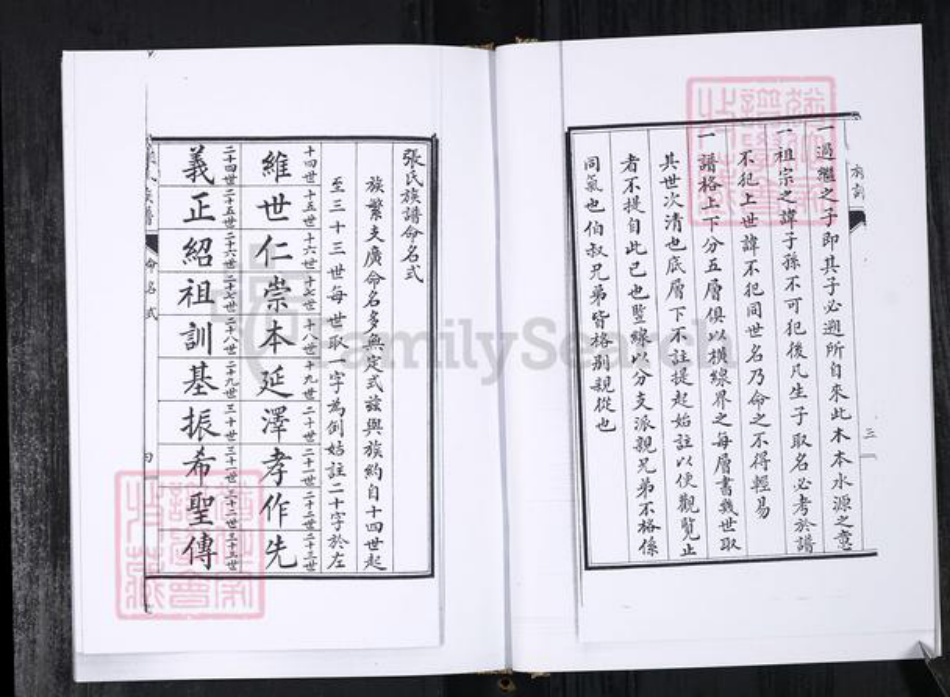 一過繼之子即其子必遡所自來此木本水源之意
一祖宗之諱子孫不可犯後凡生子取名必考於譜
不犯上世諱不犯同世名乃命之不得輕易
一譜格上下分五層俱以橫線界之每層書幾世取
其世次清也底層下不註提起始註以便觀覽止
者不提自此已也豎線以分支派親兄弟不格係
同氣也伯叔兄弟皆格別親從也
三
張氏族譜命名式
族繁支廣命名多無定式茲與族約自十四世起
至三十三世每世取一字為例姑註二十字於左
十四世 十五世 十六世 十七世 十八世 十九世 二十世 二十一世 二十二世 二十三世
維世仁崇本延澤孝作先
二十四世 二十五世 二十六世 二十七世 二十八世 二十九世 三十世 三十一世 三十二世 三十三世
義正紹祖訓基振希聖傳
族譜
命名式
FamilySearch